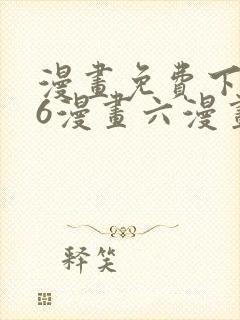 漫畫免費下
6漫畫六漫畫
释笑